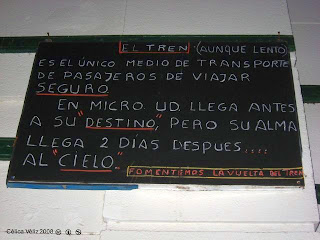 EL TREN (AUNQUE LENTO)
ES EL ÚNICO MEDIO DE TRANSPORTE
DE PASAJEROS DE VIAJAR
SEGURO.
EN MICRO UD. LLEGA ANTES
A SU "DESTINO", PERO SU ALMA
LLEGA 2 DIAS DESPUES....
AL "CIELO".
FOMENTEMOS LA VUELTA DEL TREN
Célica Véliz 2008